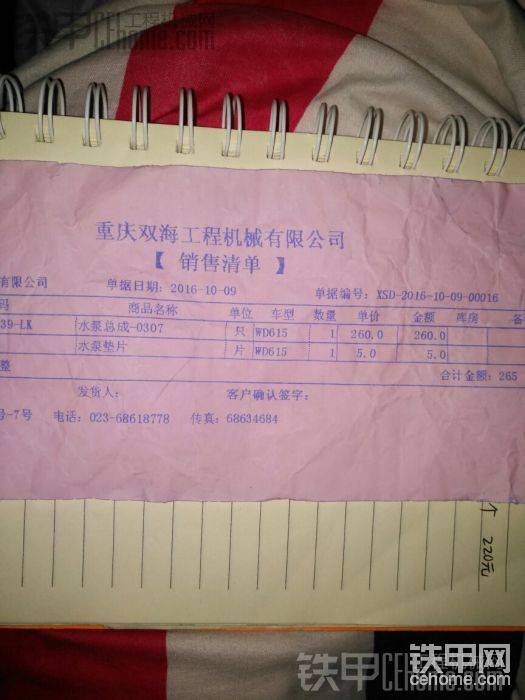 铁甲工程机械网
CEhome.com
重庆双海工程机械有限公司
【 销售清单 】
有限公司 单据日期：2016-10-09 单据编号：XSD-2016-10-09-00016
码 商品名称 单位 车型 数量 单价 金额 库房 备
39-LK 水泵总成-0307 只 WD615 1 260.0 260.0
水泵垫片 片 WD615 1 5.0 5.0
整 合计金额：265
发货人： 客户确认签字：
号-7号 电话：023-68618778 传真：68634684
220元
铁甲网
cehome.com